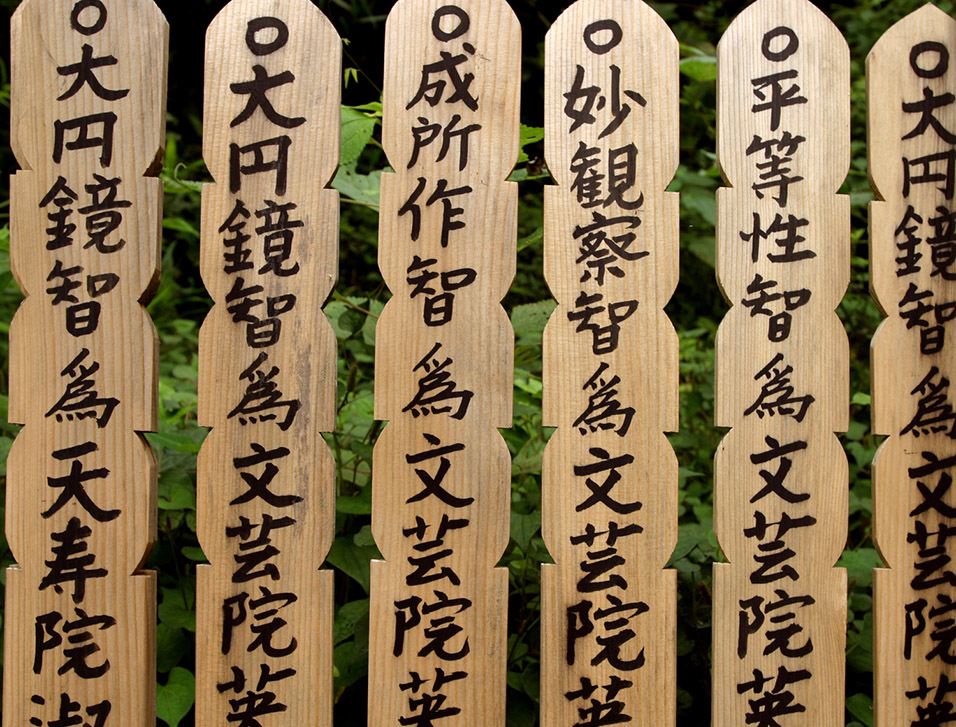 〇大円鏡智為天寿院淑
〇大円鏡智為文芸院英
〇成所作智為文芸院英
〇妙観察智為文芸院英
〇平等性智為文芸院英
〇大円鏡智為文芸院英